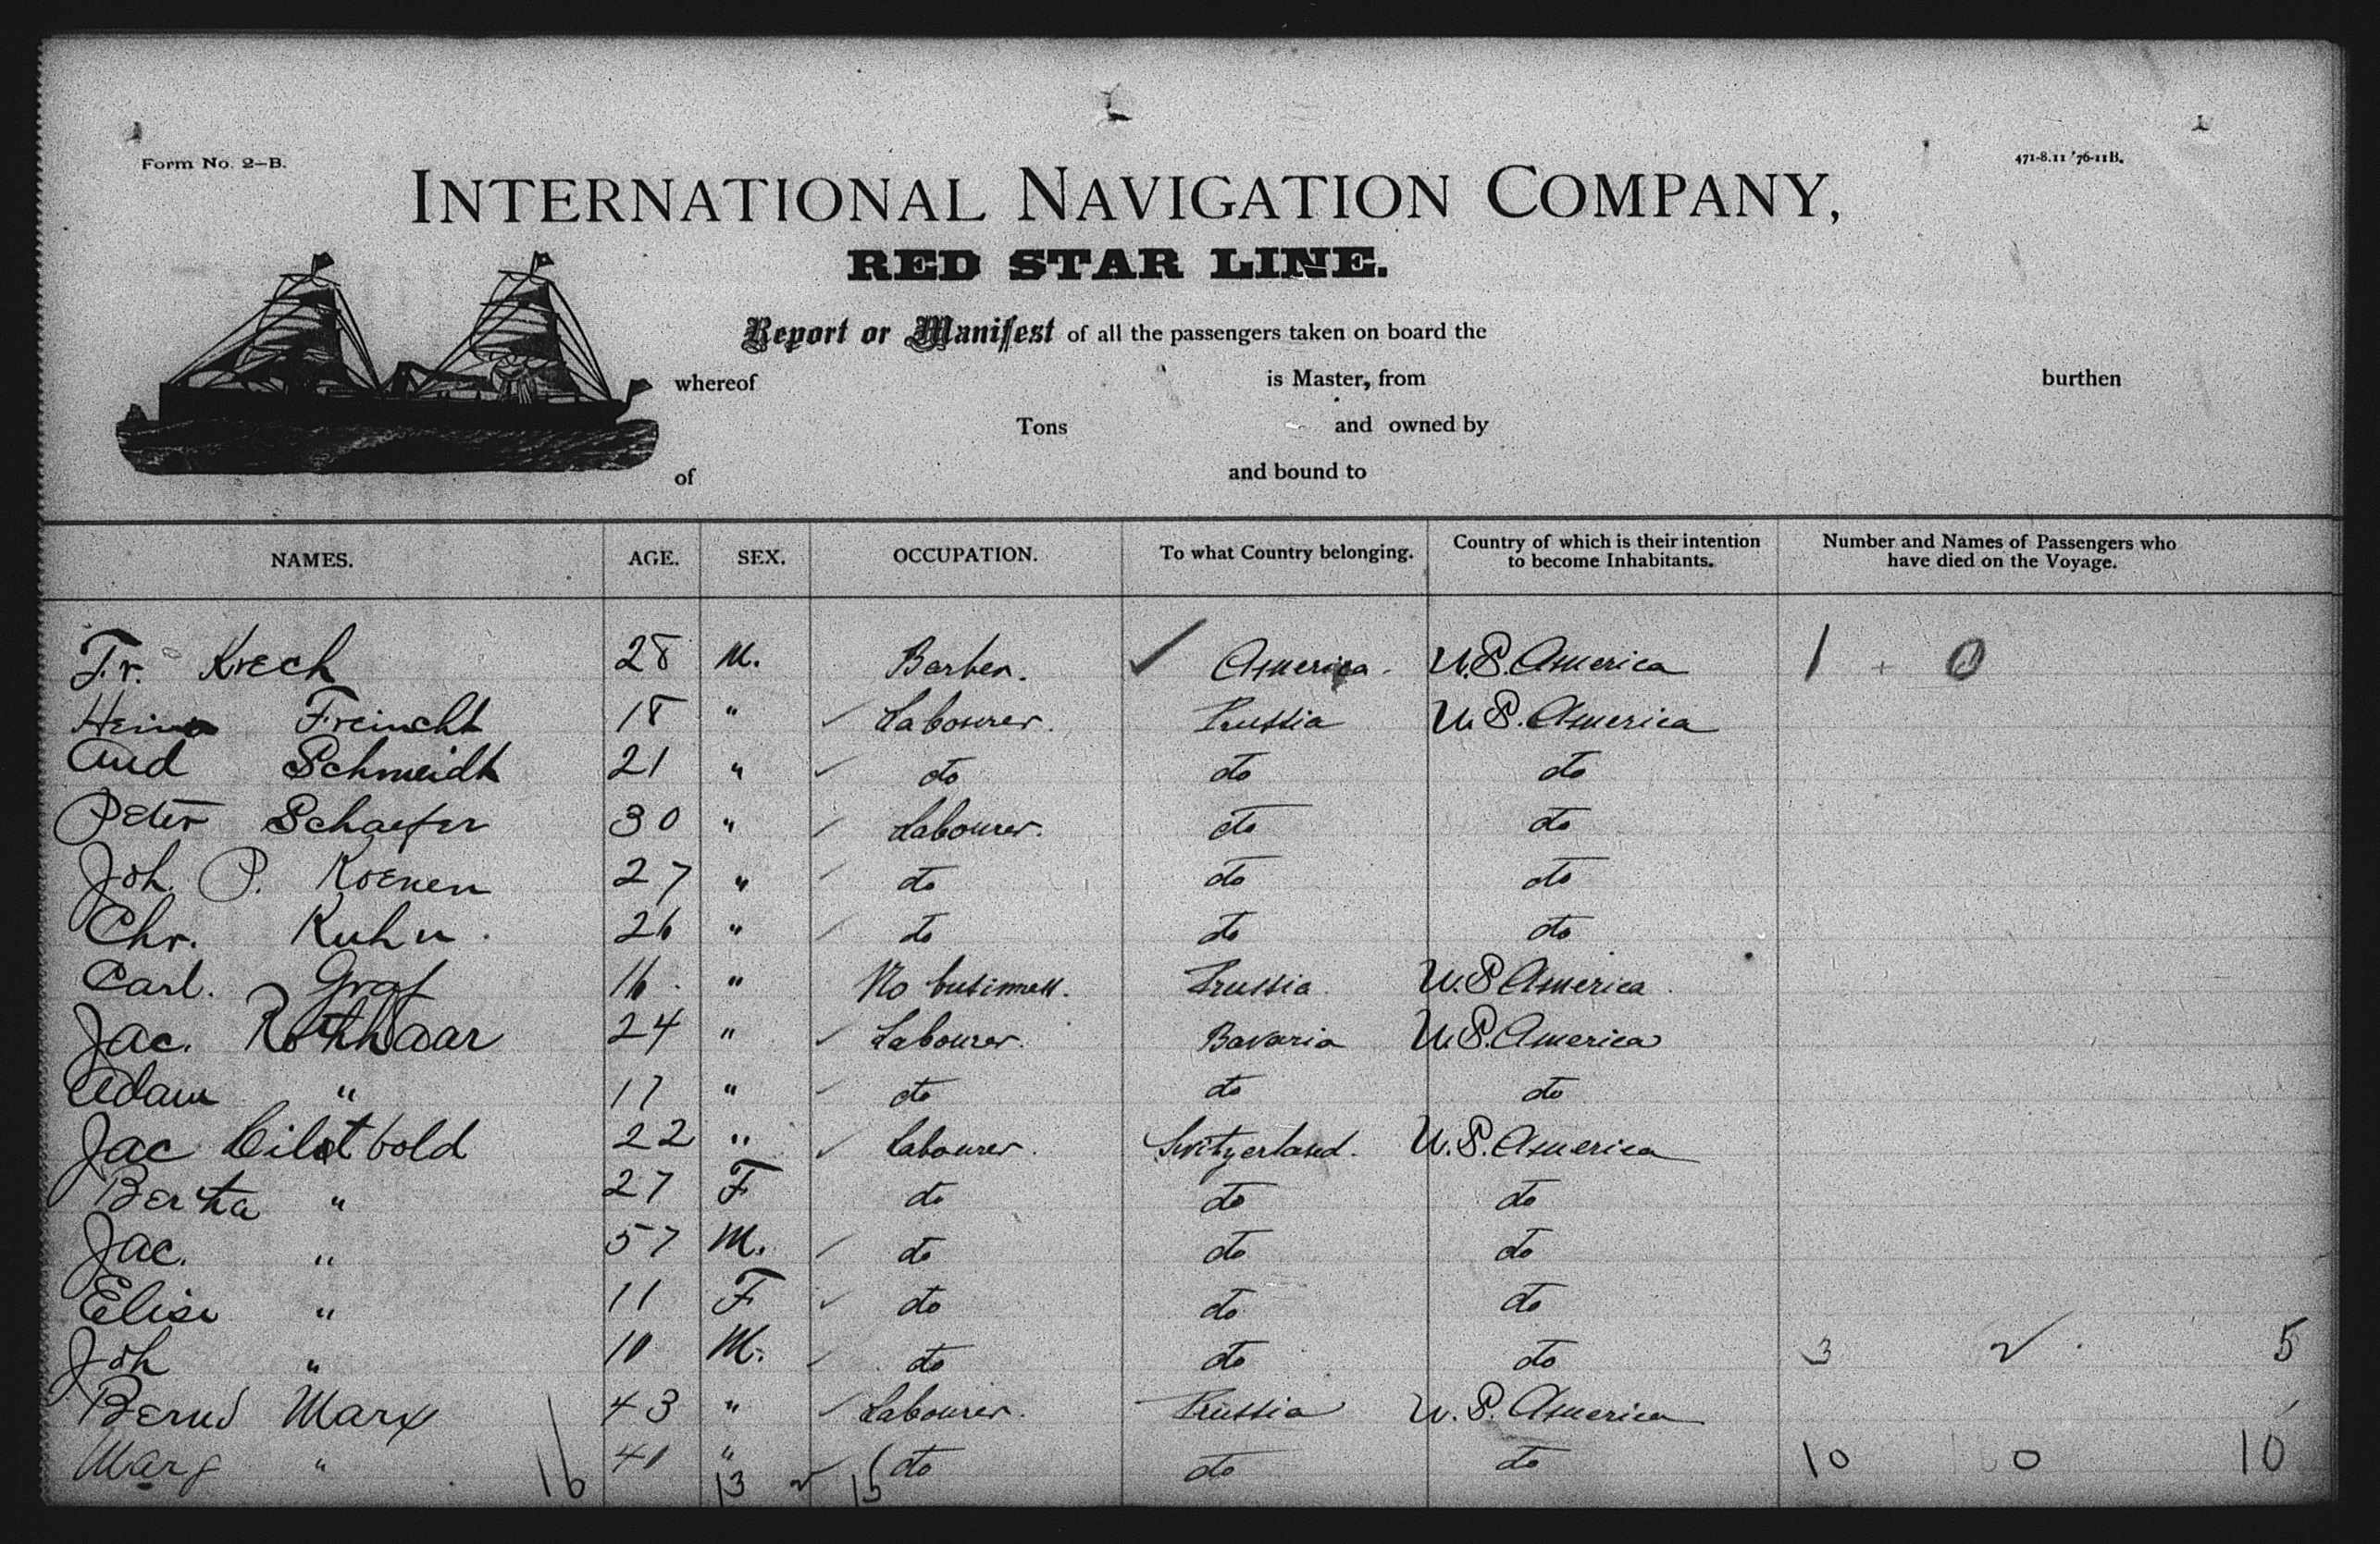 Form No. 2-B.
471-8.11 '76-11B.
INTERNATIONAL NAVIGATION COMPANY,
RED STAR LINE.
Report or Manifest of all the passengers taken on board the
whereof is Master, from burthen
Tons and owned by
of and bound to
NAMES. AGE. SEX. OCCUPATION. To what Country belonging. Country of which is their intention to become Inhabitants. Number and Names of Passengers who have died on the Voyage.
Fr. Krech 28 M. Barber. ✓ America. U.S. America 1 0
Freincht 18 " ✓ Labourer. Prussia U.S. America
Aud Schmeidt 21 " ✓ do do do
Peter Schaefer 30 " ✓ Labourer. do do
Joh. P. Koenen 27 " ✓ do do do
Chr. Kuhn. 26 " ✓ do do do
Carl. Graf 16. " No businness. Prussia U.S. America
Jac. Rothhaar 24 " ✓ Labourer. Bavaria U.S. America
Adam " 17 " ✓ do do do
Jac 22 " ✓ Labourer. Switzerland. U.S. America
Berta " 27 F do do do
Jac. " 57 M. ✓ do do do
Elise " 11 F ✓ do do do
Joh " 10 M. ✓ do do do 3 5
Bernd Marx 43 " ✓ Labourer. Prussia U.S. America
Marg " 16 41 " do do do 10 0 10
13 15